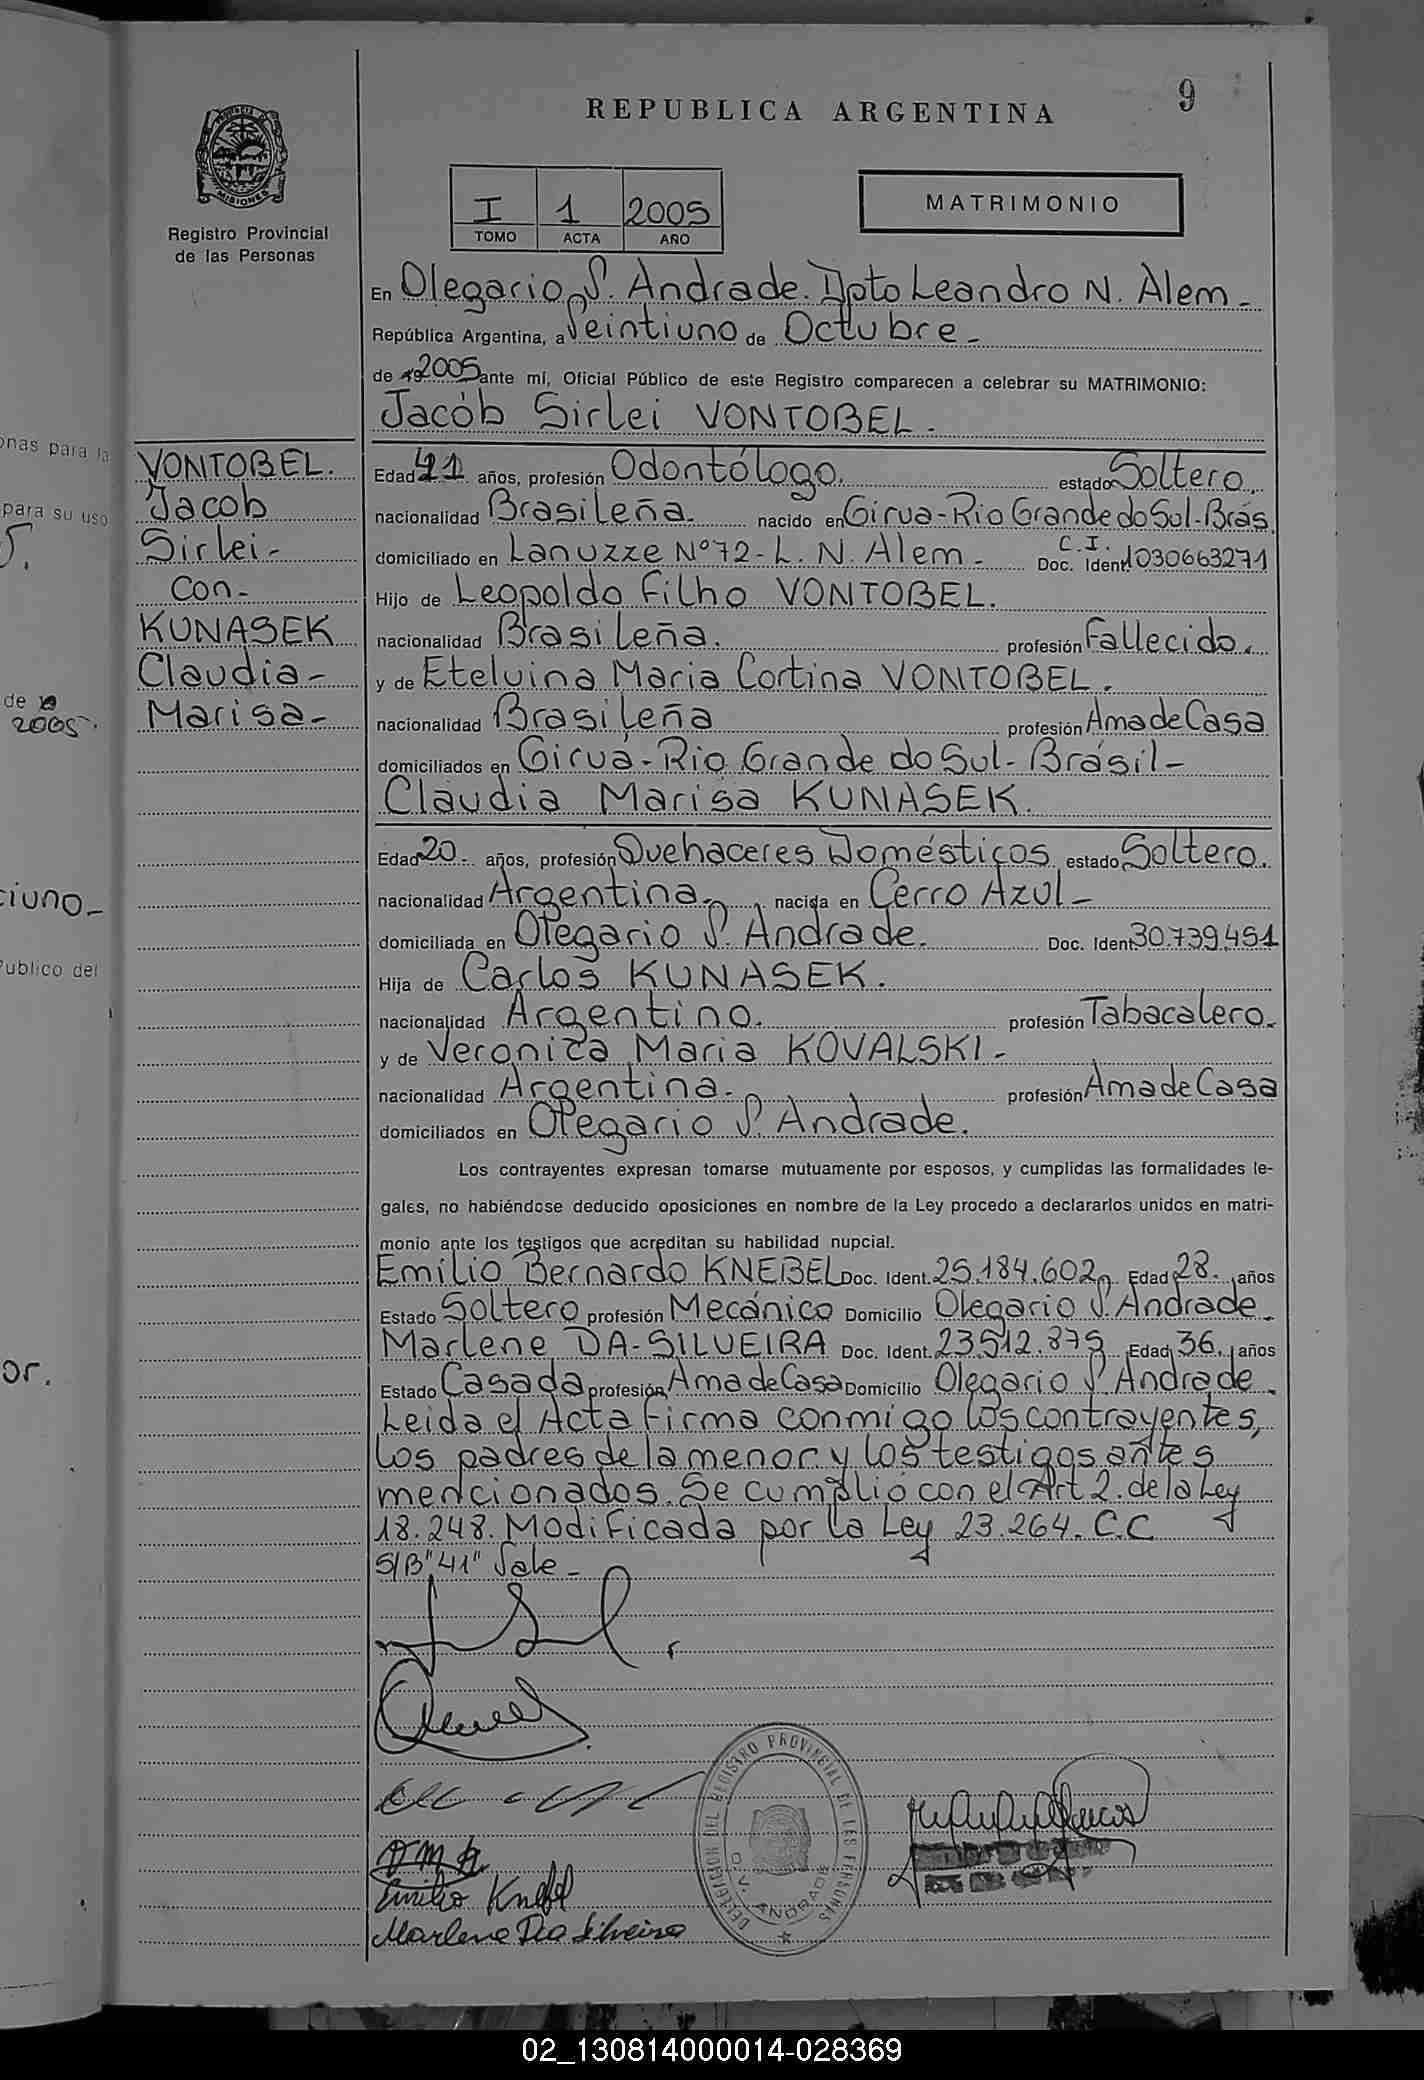 9
REPUBLICA ARGENTINA
MISIONES
Registro Provincial
de las Personas
I 1 2005
TOMO ACTA AÑO
MATRIMONIO
En Olegario V. Andrade. Dpto Leandro N. Alem -
República Argentina, a Veintiuno de Octubre -
de 2005 ante mí, Oficial Público de este Registro comparecen a celebrar su MATRIMONIO:
Jacob Sirlei VONTOBEL.
VONTOBEL.
Jacob
Sirlei-
con-
KUNASEK
Claudia-
Marisa-
Edad 41 años, profesión Odontólogo. estado Soltero.
nacionalidad Brasileña. nacido en Girua-Rio Grande do Sul-Brás.
domiciliado en Lanuzze Nº72-L. N. Alem - C.I. Doc. Ident. 1030663271
Hijo de Leopoldo Filho VONTOBEL.
nacionalidad Brasileña. profesión Fallecido.
y de Etelvina Maria Cortina VONTOBEL.
nacionalidad Brasileña profesión Ama de Casa
domiciliados en Giruá-Rio Grande do Sul-Brásil-
Claudia Marisa KUNASEK.
Edad 20- años, profesión Quehaceres Domésticos estado Soltero.
nacionalidad Argentina- nacida en Cerro Azul-
domiciliada en Olegario V. Andrade. Doc. Ident 30.739.451
Hija de Carlos KUNASEK.
nacionalidad Argentino. profesión Tabacalero.
y de Veronica Maria KOVALSKI-
nacionalidad Argentina- profesión Ama de Casa
domiciliados en Olegario V. Andrade.
Los contrayentes expresan tomarse mutuamente por esposos, y cumplidas las formalidades le-
gales, no habiéndose deducido oposiciones en nombre de la Ley procedo a declararlos unidos en matri-
monio ante los testigos que acreditan su habilidad nupcial.
Emilio Bernardo KNEBEL Doc. Ident. 25.184.602 Edad 28. años
Estado Soltero profesión Mecánico Domicilio Olegario V. Andrade.
Marlene DA-SILVEIRA Doc. Ident. 23.512.875 Edad 36. años
Estado Casada profesión Ama de Casa Domicilio Olegario V. Andrade.
Leida el Acta firma conmigo los contrayentes,
los padres de la menor y los testigos antes
mencionados. Se cumplió con el Art 2. de la Ley
18.248. Modificada por la Ley 23.264. C.C
S/B "41" Vale-
Emilio Knebel
Marlene Da Silveira
DELEGACION DEL REGISTRO PROVINCIAL DE LAS PERSONAS
O. V. ANDRADE
onas para la
para su uso
5.
de
2005.
ciuno-
Publico del
or.
02_130814000014-028369